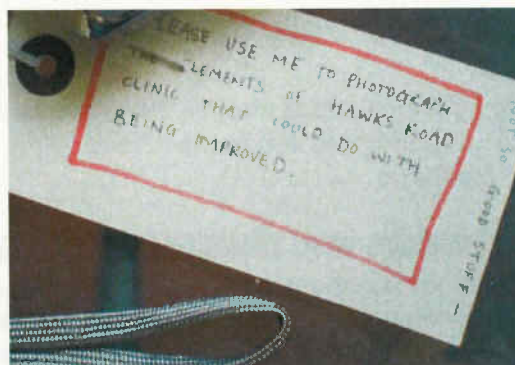 LEASE USE ME TO PHOTOGRAPH
THE ELEMENTS OF HAWKS ROAD
CLINIC THAT COULD DO WITH
BEING IMPROVED.
NOT SO GOOD STUFF -